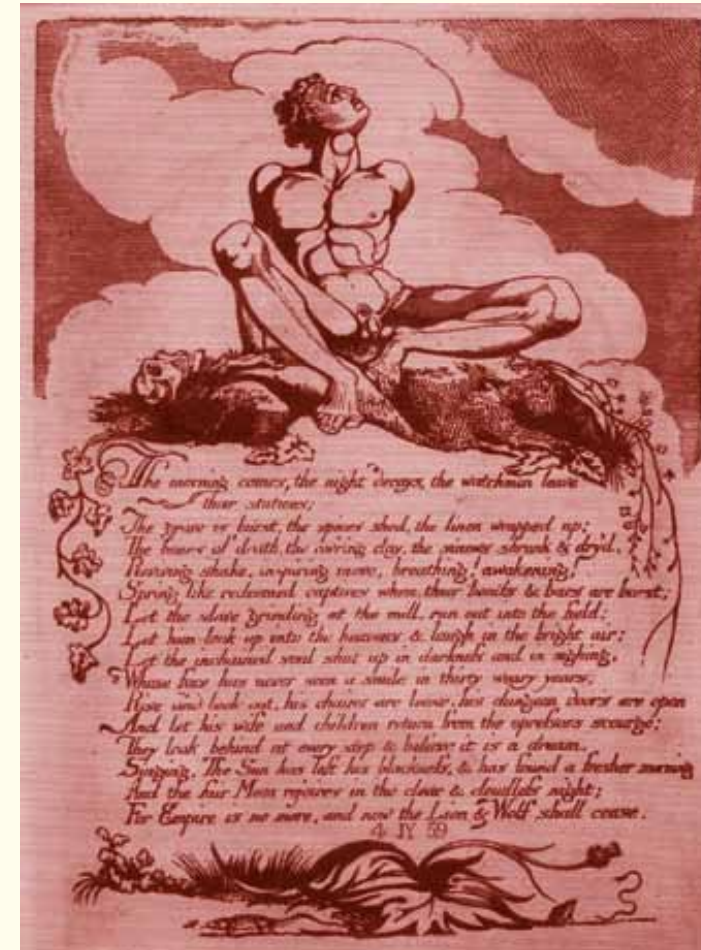 The morning comes, the night decays, the watchmen leave
their stations;
The grave is burst, the spices shed, the linen wrapped up;
The bones of death, the cov'ring clay, the sinews shrunk & dry'd,
Reviving shake, inspiring move, breathing! awakening!
Spring like redeemed captives when their bonds & bars are burst;
Let the slave grinding at the mill, run out into the field;
Let him look up into the heavens & laugh in the bright air;
Let the inchained soul shut up in darkness and in sighing,
Whose face has never seen a smile in thirty weary years;
Rise and look out, his chains are loose, his dungeon doors are open
And let his wife and children return from the opressors scourge;
They look behind at every step & believe it is a dream,
Singing, The Sun has left his blackness, & has found a fresher morning
And the fair Moon rejoices in the clear & cloudless night;
For Empire is no more, and now the Lion & Wolf shall cease.
4 JY 59